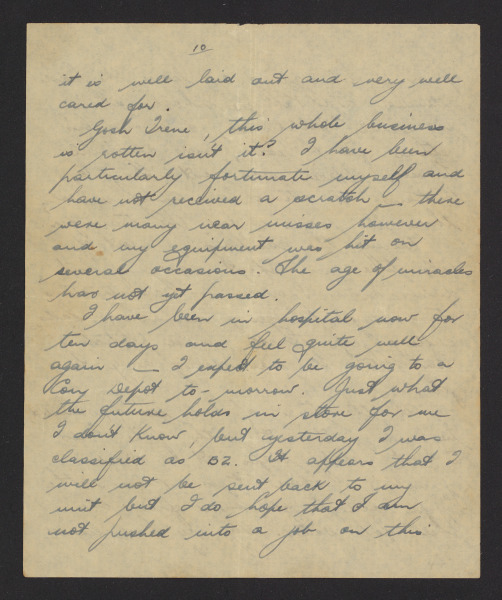 10
it is well laid out and very well
cared for.
Gosh Irene, this whole business
is rotten isn't it? I have been
particularly fortunate myself and
have not received a scratch — there
were many near misses however
and my equipment was hit on
several occasions. The age of miracles
has not yet passed.
I have been in hospital now for
ten days and feel quite well
again — I expect to be going to a
Con Depot to-morrow. Just what
the future holds in store for me
I don't know, but yesterday I was
classified as B2. It appears that I
will not be sent back to my
unit but I do hope that I am
not pushed into a job on this